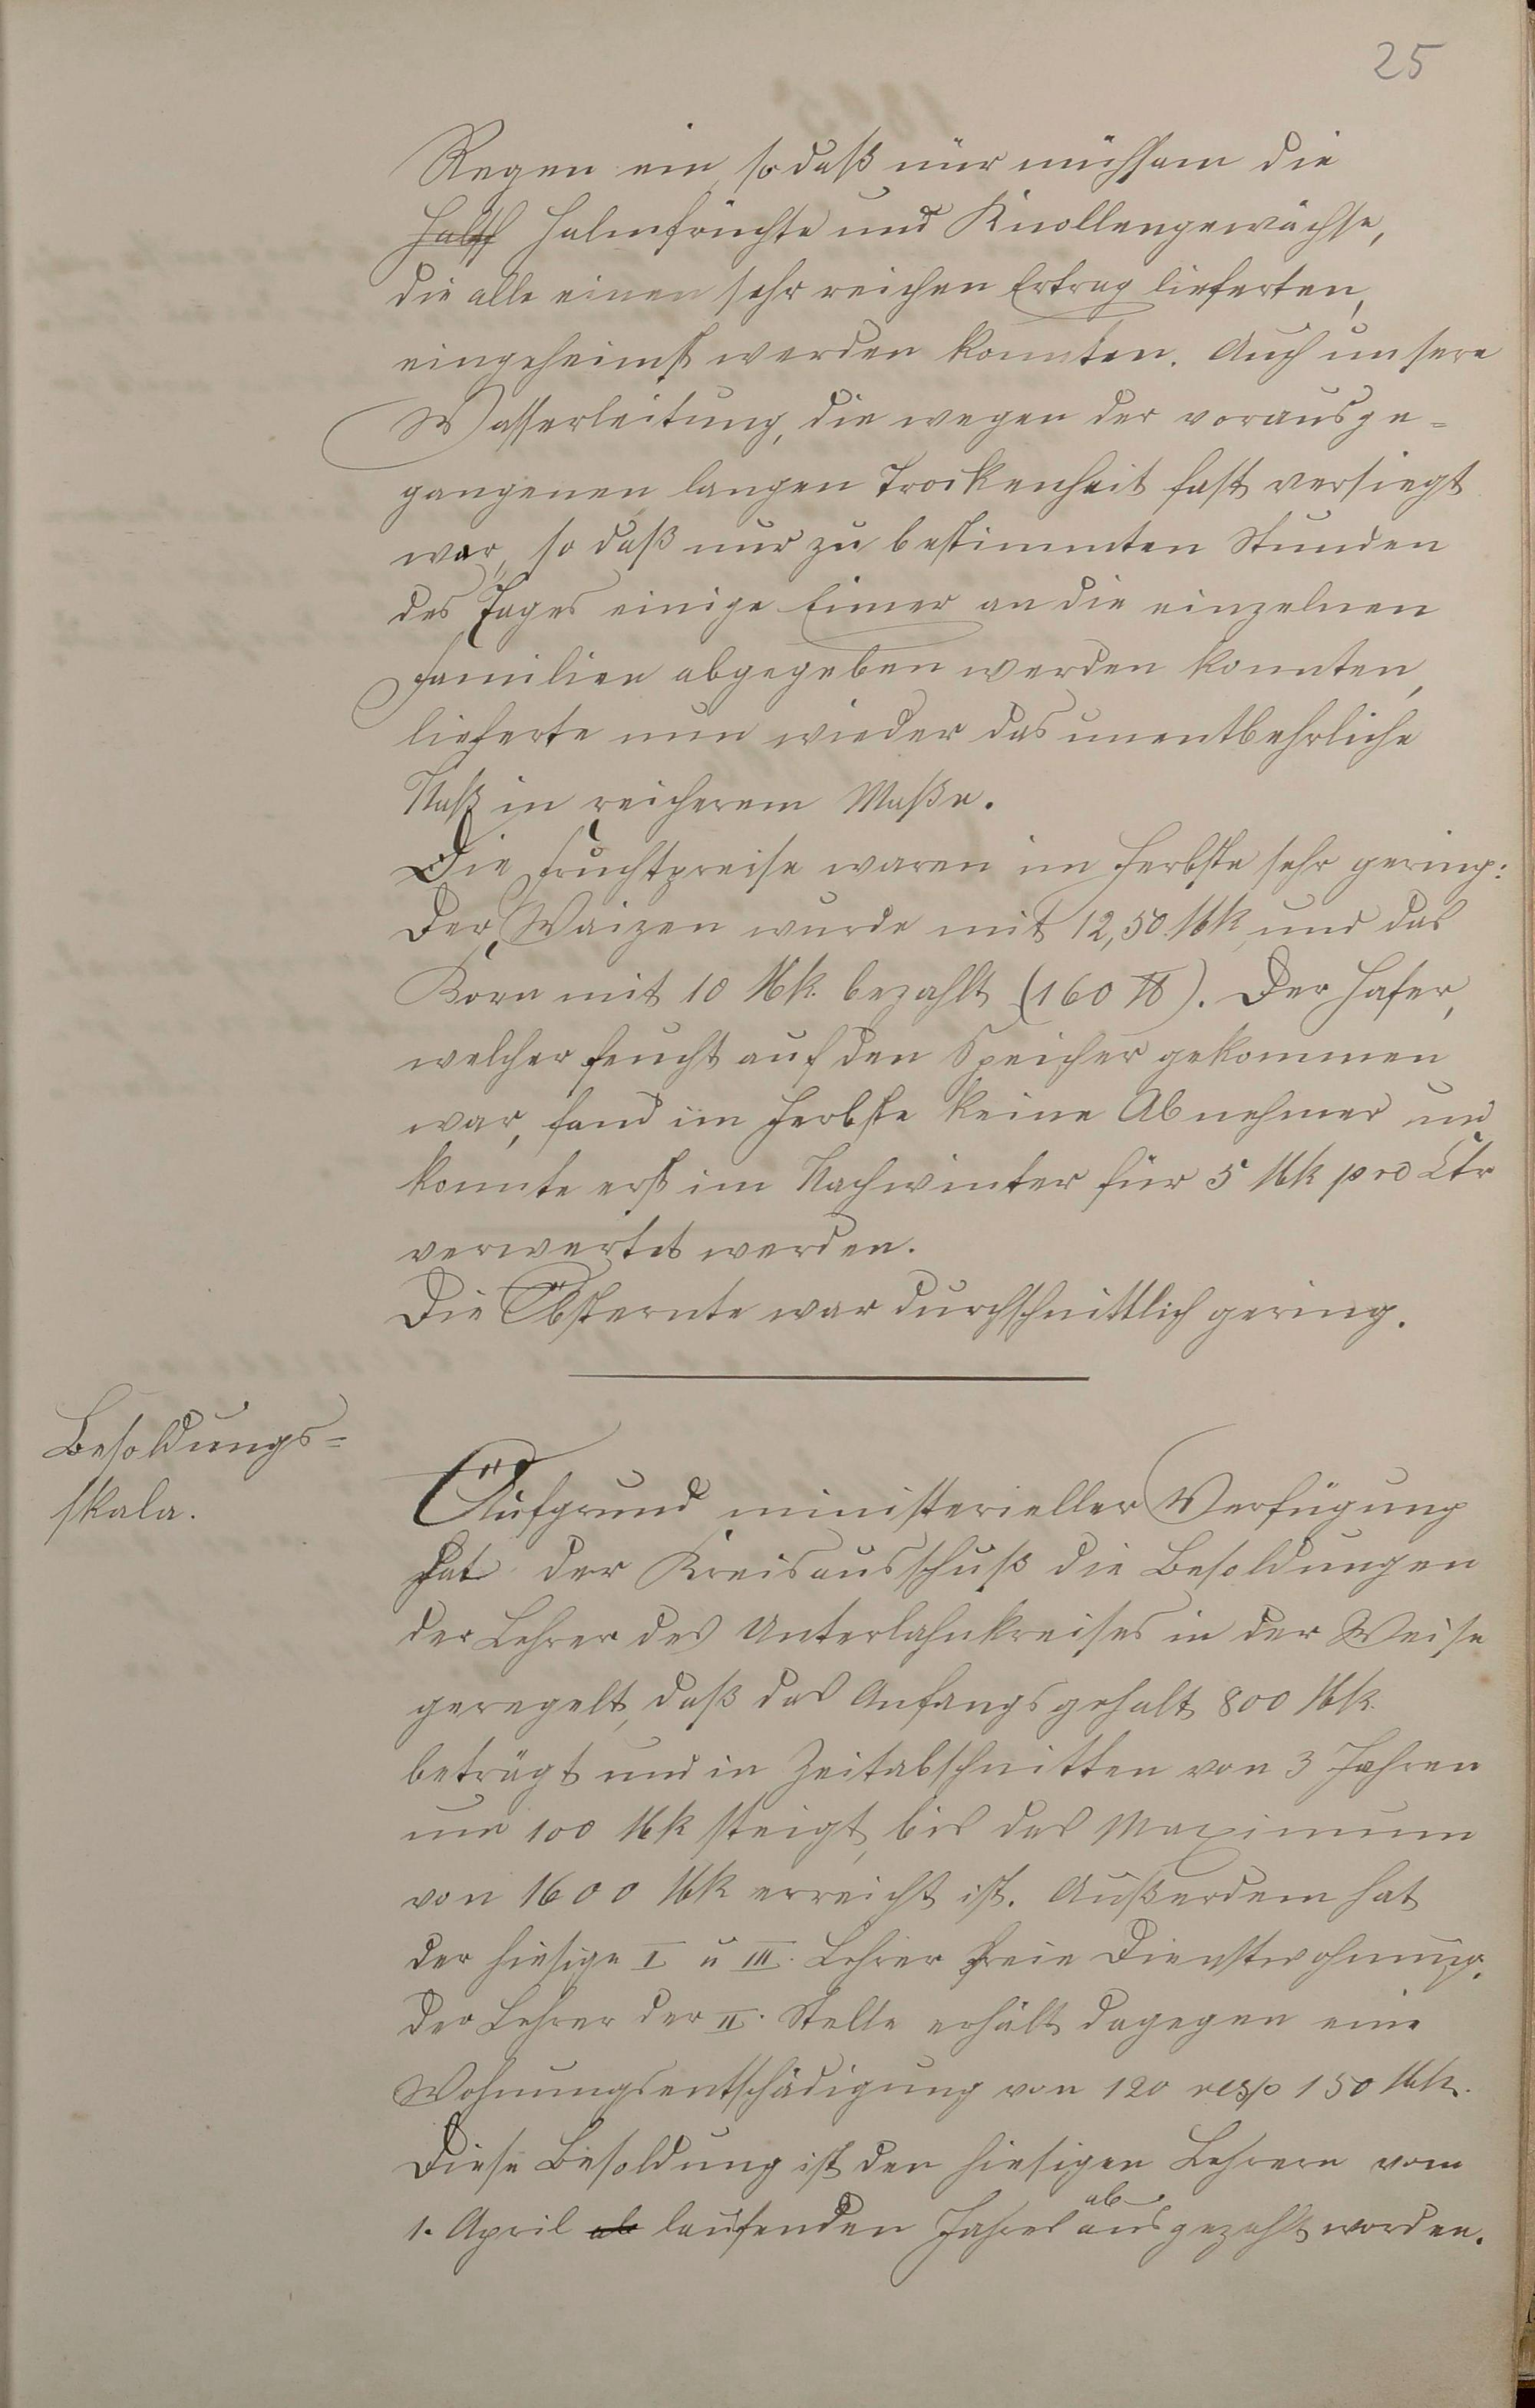 25
Regen ein, sodaß nur mühsam die
Halff Halmfrüchte und Knollengewächse,
die alle einen sehr reichen Ertrag lieferten,
eingeheimst werden konnten. Auch unsere
Wasserleitung, die wegen der vorausge-
gangenen langen Trockenheit fast versiegt
war, so daß nur zu bestimmten Stunden
des Tages einige Eimer an die einzelnen
Familien abgegeben werden konnten,
lieferte nun wieder das unentbehrliche
Naß in reicherem Maße.
Die Fruchtpreise waren im Herbste sehr gering:
Der Waizen wurde mit 12,50 Mk, und das
Korn mit 10 Mk. bezahlt (160 ℔). Der Hafer,
welcher feucht auf den Speicher gekommen
war, fand im Herbste keine Abnehmer und
konnte erst im Nachwinter für 5 Mk pro Ctr
verwertet werden.
Die Obsternte war durchschnittlich gering.
Besoldungs-
skala.
Aufgrund ministerieller Verfügung
hat der Kreisausschuß die Besoldungen
der Lehrer des Unterlahnkreises in der Weise
geregelt, daß das Anfangsgehalt 800 Mk.
beträgt und in Zeitabschnitten von 3 Jahren
um 100 Mk steigt, bis das Maximum
von 1600 Mk erreicht ist. Außerdem hat
der hiesige I u III. Lehrer freie Dienstwohnung.
Der Lehrer der II. Stelle erhält dagegen eine
Wohnungsentschädigung von 120 resp 150 Mk.
Diese Besoldung ist den hiesigen Lehrern vom
1. April ab laufenden Jahres ab ausgezahlt worden.